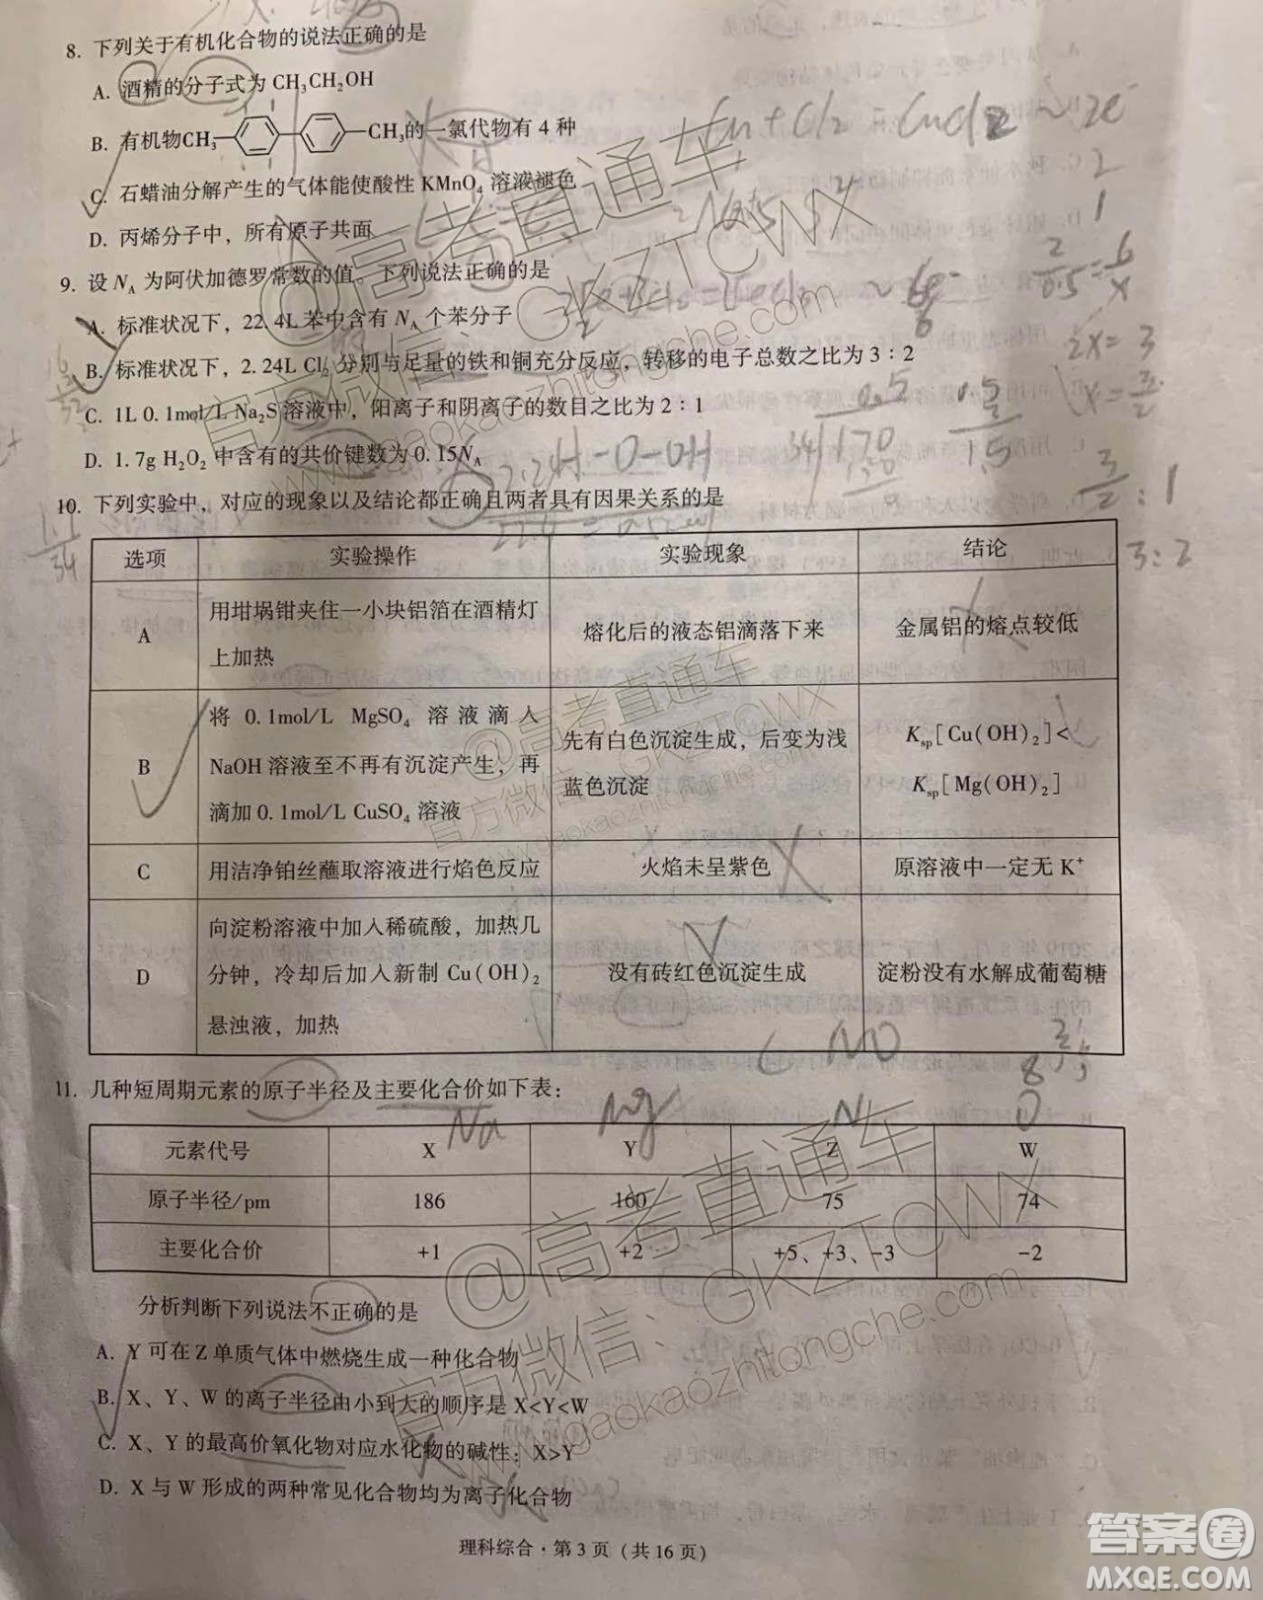 8. 下列关于有机化合物的说法正确的是
A. 酒精的分子式为 CH₃CH₂OH
B. 有机物CH₃ CH₃的一氯代物有 4 种
C. 石蜡油分解产生的气体能使酸性 KMnO₄ 溶液褪色
D. 丙烯分子中，所有原子共面
9. 设 N_A 为阿伏加德罗常数的值。下列说法正确的是
A. 标准状况下，22.4L 苯中含有 N_A 个苯分子
B. 标准状况下，2.24L Cl₂ 分别与足量的铁和铜充分反应，转移的电子总数之比为 3：2
C. 1L 0.1mol/L Na₂S 溶液中，阳离子和阴离子的数目之比为 2：1
D. 1.7g H₂O₂ 中含有的共价键数为 0.15N_A
10. 下列实验中，对应的现象以及结论都正确且两者具有因果关系的是
选项 实验操作 实验现象 结论
A 用坩埚钳夹住一小块铝箔在酒精灯上加热 熔化后的液态铝滴落下来 金属铝的熔点较低
B 将 0.1mol/L MgSO₄ 溶液滴入 NaOH 溶液至不再有沉淀产生，再滴加 0.1mol/L CuSO₄ 溶液 先有白色沉淀生成，后变为浅蓝色沉淀 K_sp[Cu(OH)₂]< K_sp[Mg(OH)₂]
C 用洁净铂丝蘸取溶液进行焰色反应 火焰未呈紫色 原溶液中一定无 K⁺
D 向淀粉溶液中加入稀硫酸，加热几分钟，冷却后加入新制 Cu(OH)₂ 悬浊液，加热 没有砖红色沉淀生成 淀粉没有水解成葡萄糖
11. 几种短周期元素的原子半径及主要化合价如下表：
元素代号 X Y Z W
原子半径/pm 186 160 75 74
主要化合价 +1 +2 +5、+3、-3 -2
分析判断下列说法不正确的是
A. Y 可在 Z 单质气体中燃烧生成一种化合物
B. X、Y、W 的离子半径由小到大的顺序是 X<Y<W
C. X、Y 的最高价氧化物对应水化物的碱性：X>Y
D. X 与 W 形成的两种常见化合物均为离子化合物
理科综合·第 3 页（共 16 页）
@高考直通车
官方微信：GKZTCWX
www.gaokaozhitongche.com
@高考直通车
官方微信：GKZTCWX
www.gaokaozhitongche.com
@高考直通车
官方微信：GKZTCWX
www.gaokaozhitongche.com
Na
Mg
N
O
答案圈
MXQE.COM